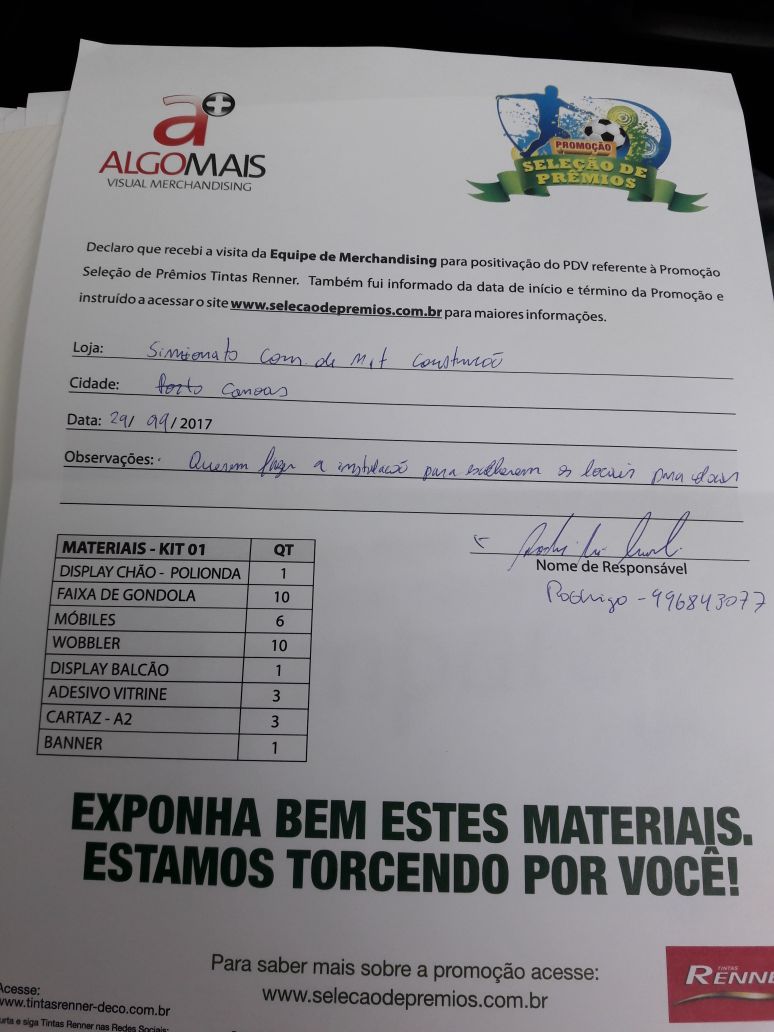 a+
ALGOMAIS
VISUAL MERCHANDISING
PROMOÇÃO
SELEÇÃO DE
PRÊMIOS
Declaro que recebi a visita da Equipe de Merchandising para positivação do PDV referente à Promoção
Seleção de Prêmios Tintas Renner. Também fui informado da data de início e término da Promoção e
instruído a acessar o site www.selecaodepremios.com.br para maiores informações.
Loja: Simionato Com. de Mat Construcão
Cidade: Porto Canoas
Data: 29/ 09 / 2017
Observações: Querem fazer a instalacão para escolherem os locais
Nome de Responsável
Rodrigo - 996843077
MATERIAIS - KIT 01 QT
DISPLAY CHÃO - POLIONDA 1
FAIXA DE GONDOLA 10
MÓBILES 6
WOBBLER 10
DISPLAY BALCÃO 1
ADESIVO VITRINE 3
CARTAZ - A2 3
BANNER 1
EXPONHA BEM ESTES MATERIAIS.
ESTAMOS TORCENDO POR VOCÊ!
Para saber mais sobre a promoção acesse:
www.selecaodepremios.com.br
TINTAS
RENNE
Acesse:
www.tintasrenner-deco.com.br
urta e siga Tintas Renner nas Redes Sociais: